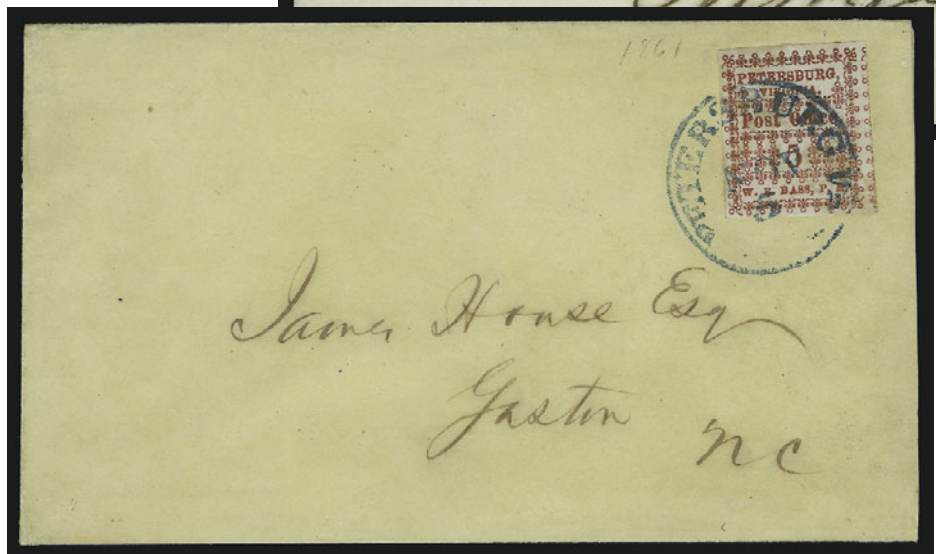 1861
PETERSBURG,
VIRGINIA.
Post Office
5
W. E. BASS, P.
PETERSBURG VA
5
James House Esq
Gaston
NC